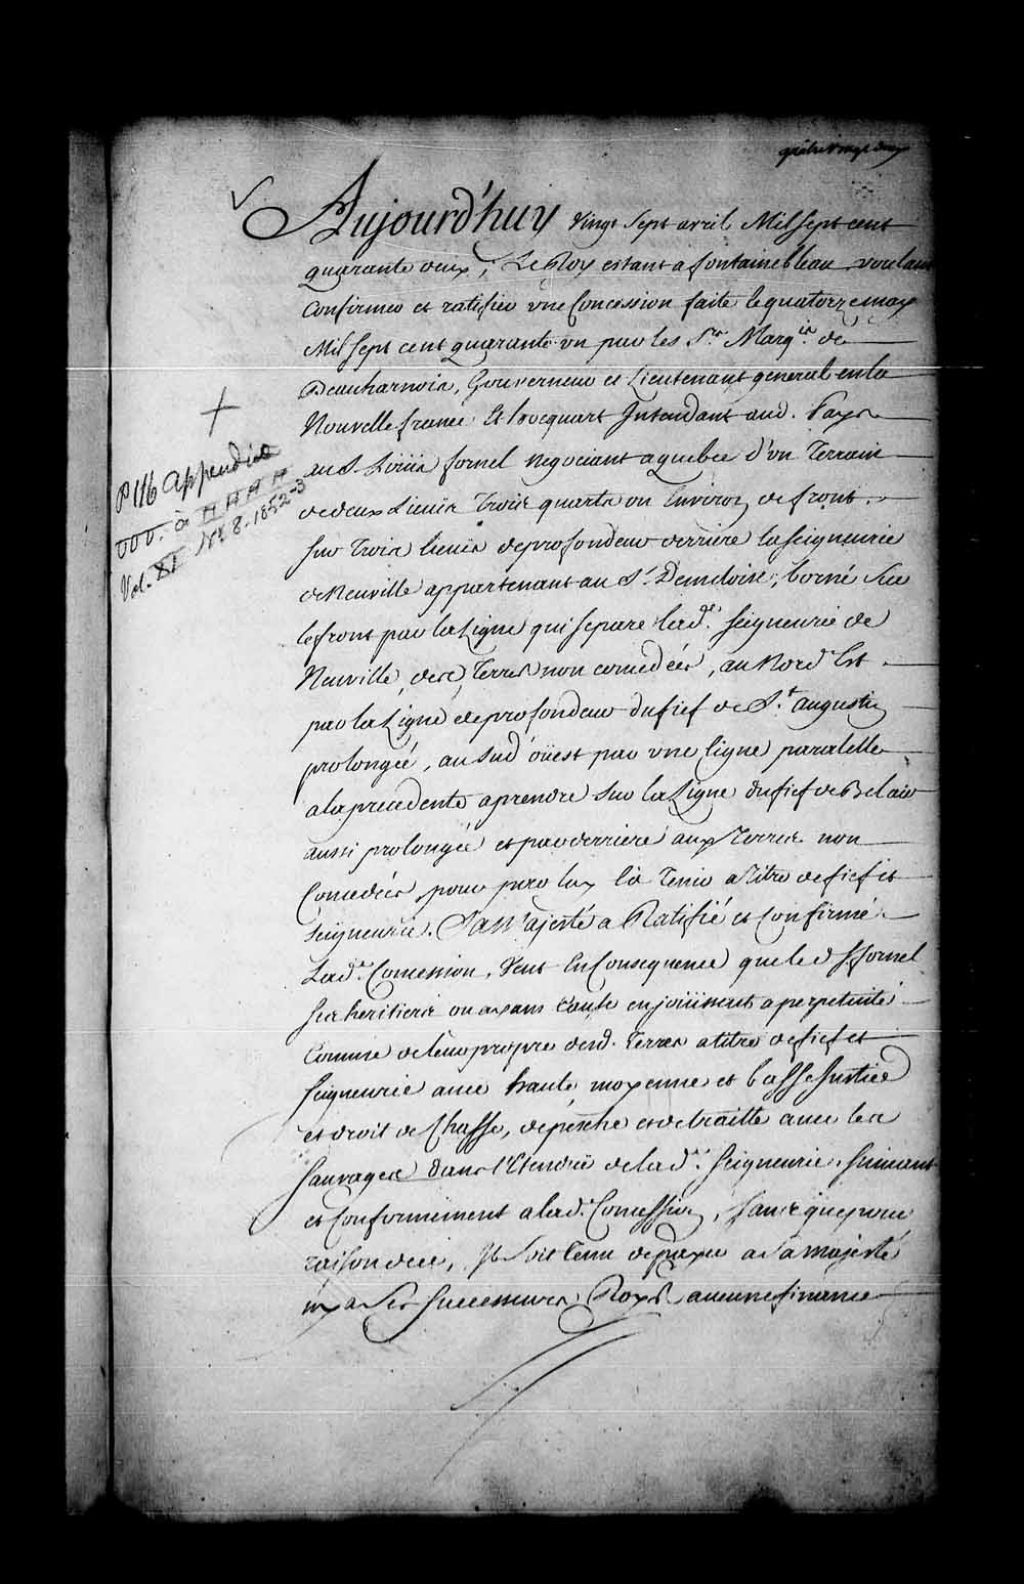 quatre vingt deux
Aujourd'huy Vingt Sept avril Mil Sept cent
quarante deux, Le Roy estant a fontainebleau voulant
Confirmer et ratifier une Concession faite le quatorze may
Mil Sept cent quarante un par les Srs. Marqis. de
Beauharnois, Gouverneur et Lieutenant general en la
Nouvelle france Et hocquart Intendant aud. Pays
au S. Loüis fornel negociant a quebec d'un Terrain
de deux Lieües Trois quarts ou Environ de front
sur Trois lieües de profondeur derriere la seigneurie
de Neuville appartenant au Sr. Demeloise, borné Sur
le front par la Ligne qui separe lade. seigneurie de
Neuville, des Terres non concedées, au Nord Est
par la Ligne de profondeur du fief de St. augustin
prolongée, au Sud oüest par une ligne paralelle
a la precedente a prendre sur la Ligne du fief de Belair
aussi prolongée et par derriere aux Terres non
Concedées, pour par luy la Tenir a Titre de fief et
seigneurie. Sa Majesté a Ratifié et Confirmé
Lade. Concession, Veut En Consequence que led S. fornel
ses heritiers ou ayans cause en joüissent a perpetuité
Comme de leur propre desd. Terres a titre de fief et
seigneurie avec haute moyenne et basse Justice
et droit de Chasse, de pesche et de traitte avec les
Sauvages dans l'Etendüe de lade. Seigneurie, suivant
et Conformement a lad. Concession, sans que pour
raison de ce, Il soit Tenu de payer a Sa majesté
ny a Ses Successeurs Roys aucune finance
P 116 Appendice
VVV. à H H H H
Vol. XI No. 8 - 1852-3